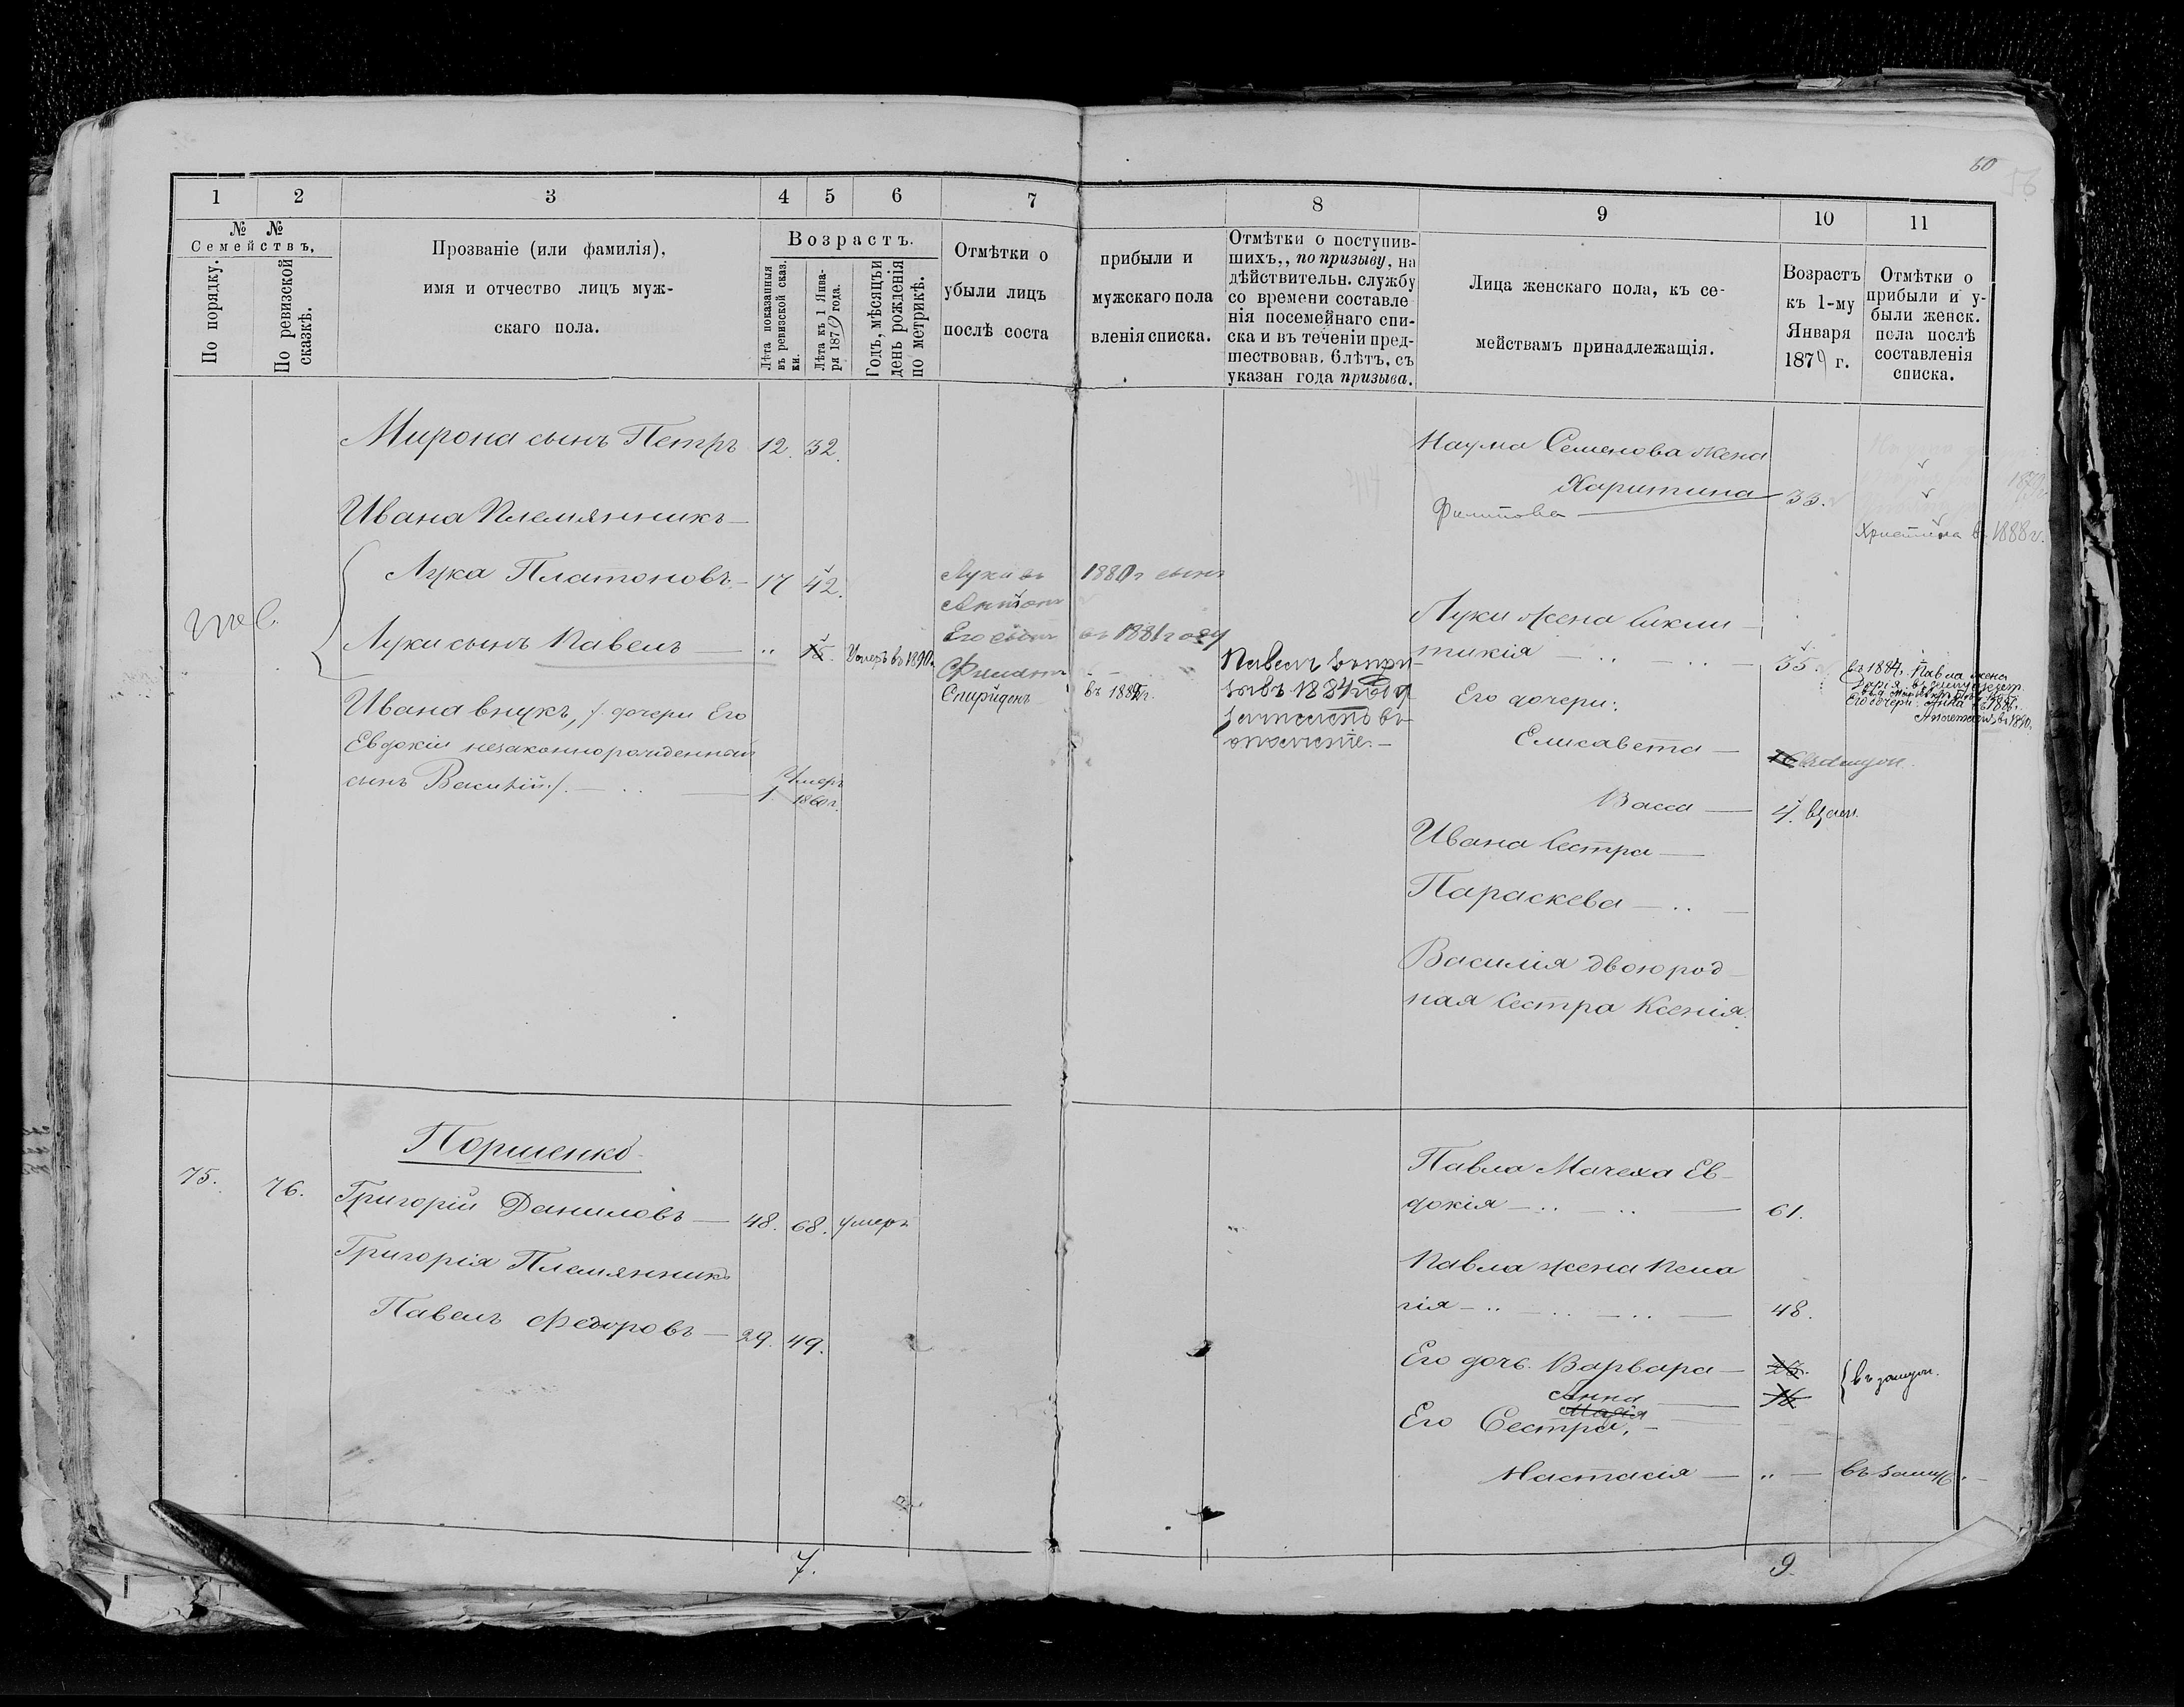 60
1 2 3 4 5 6 7 8 9 10 11
№ № Семействъ,
По порядку.
По ревизской сказкѣ.
Прозваніе (или фамилія),
имя и отчество лицъ муж-
скаго пола.
Возрастъ.
Лѣта показанныя
въ ревизской сказ.
ки.
Лѣта къ 1 Янва-
ря 1879 года.
Годъ, мѣсяцъ и
день рожденія
по метрикѣ.
Отмѣтки о прибыли и
убыли лицъ мужскаго пола
послѣ составленія списка.
Отмѣтки о поступив-
шихъ,, по призыву, на
дѣйствительн. службу
со времени составле
нія посемейнаго спи-
ска и въ теченіи пред-
шествовав. 6 лѣтъ, съ
указан года призыва.
Лица женскаго пола, къ се-
мействамъ принадлежащія.
Возрастъ
къ 1-му
Января
1879 г.
Отмѣтки о
прибыли и у-
были женск.
пола послѣ
составленія
списка.
Мирона сынъ Петръ 12. 32.
Ивана Племянникъ —
Лука Платоновъ — 17 42.
Луки сынъ Павелъ — „ 18. Умеръ въ 1890г.
Ивана внукъ, /. дочери Его
Евдокіи незаконнорожденный
сынъ Василій ./. — 1. Умеръ
1860 г.
Луки въ 1880 г сынъ
Антонъ
Его сынъ въ 1881 году
Филатъ
Спиридонъ въ 1882 г.
Павелъ въ при-
зывъ 1884 года
зачисленъ въ
ополченіе. —
Наума Семенова жена
Харитина 33.
Филипова
Христина въ 1888 г.
Луки жена Сикли
тикія — 35.
въ 1884. Павла жена
Его дочери: Анна 1886.
Анастасія въ 1890.
Его дочери:
Елисавета — 16 въ замуж.
Васса — 4. въ зам.
Ивана Сестра —
Параскева —
Василія двоюрод
ная Сестра Ксенія.
75. 76.
Поршенко
Григорій Даниловъ — 48. 68. умеръ
Григорія Племянникъ
Павелъ Федоровъ — 29. 49.
Павла Мачеха Ев-
докія — 61.
Павла жена Пела
гія — 48.
Его дочь Варвара —
Анна
Марія
въ замуж.
Его Сестра, —
Настасія — „ — въ замуж. —
7. 9.